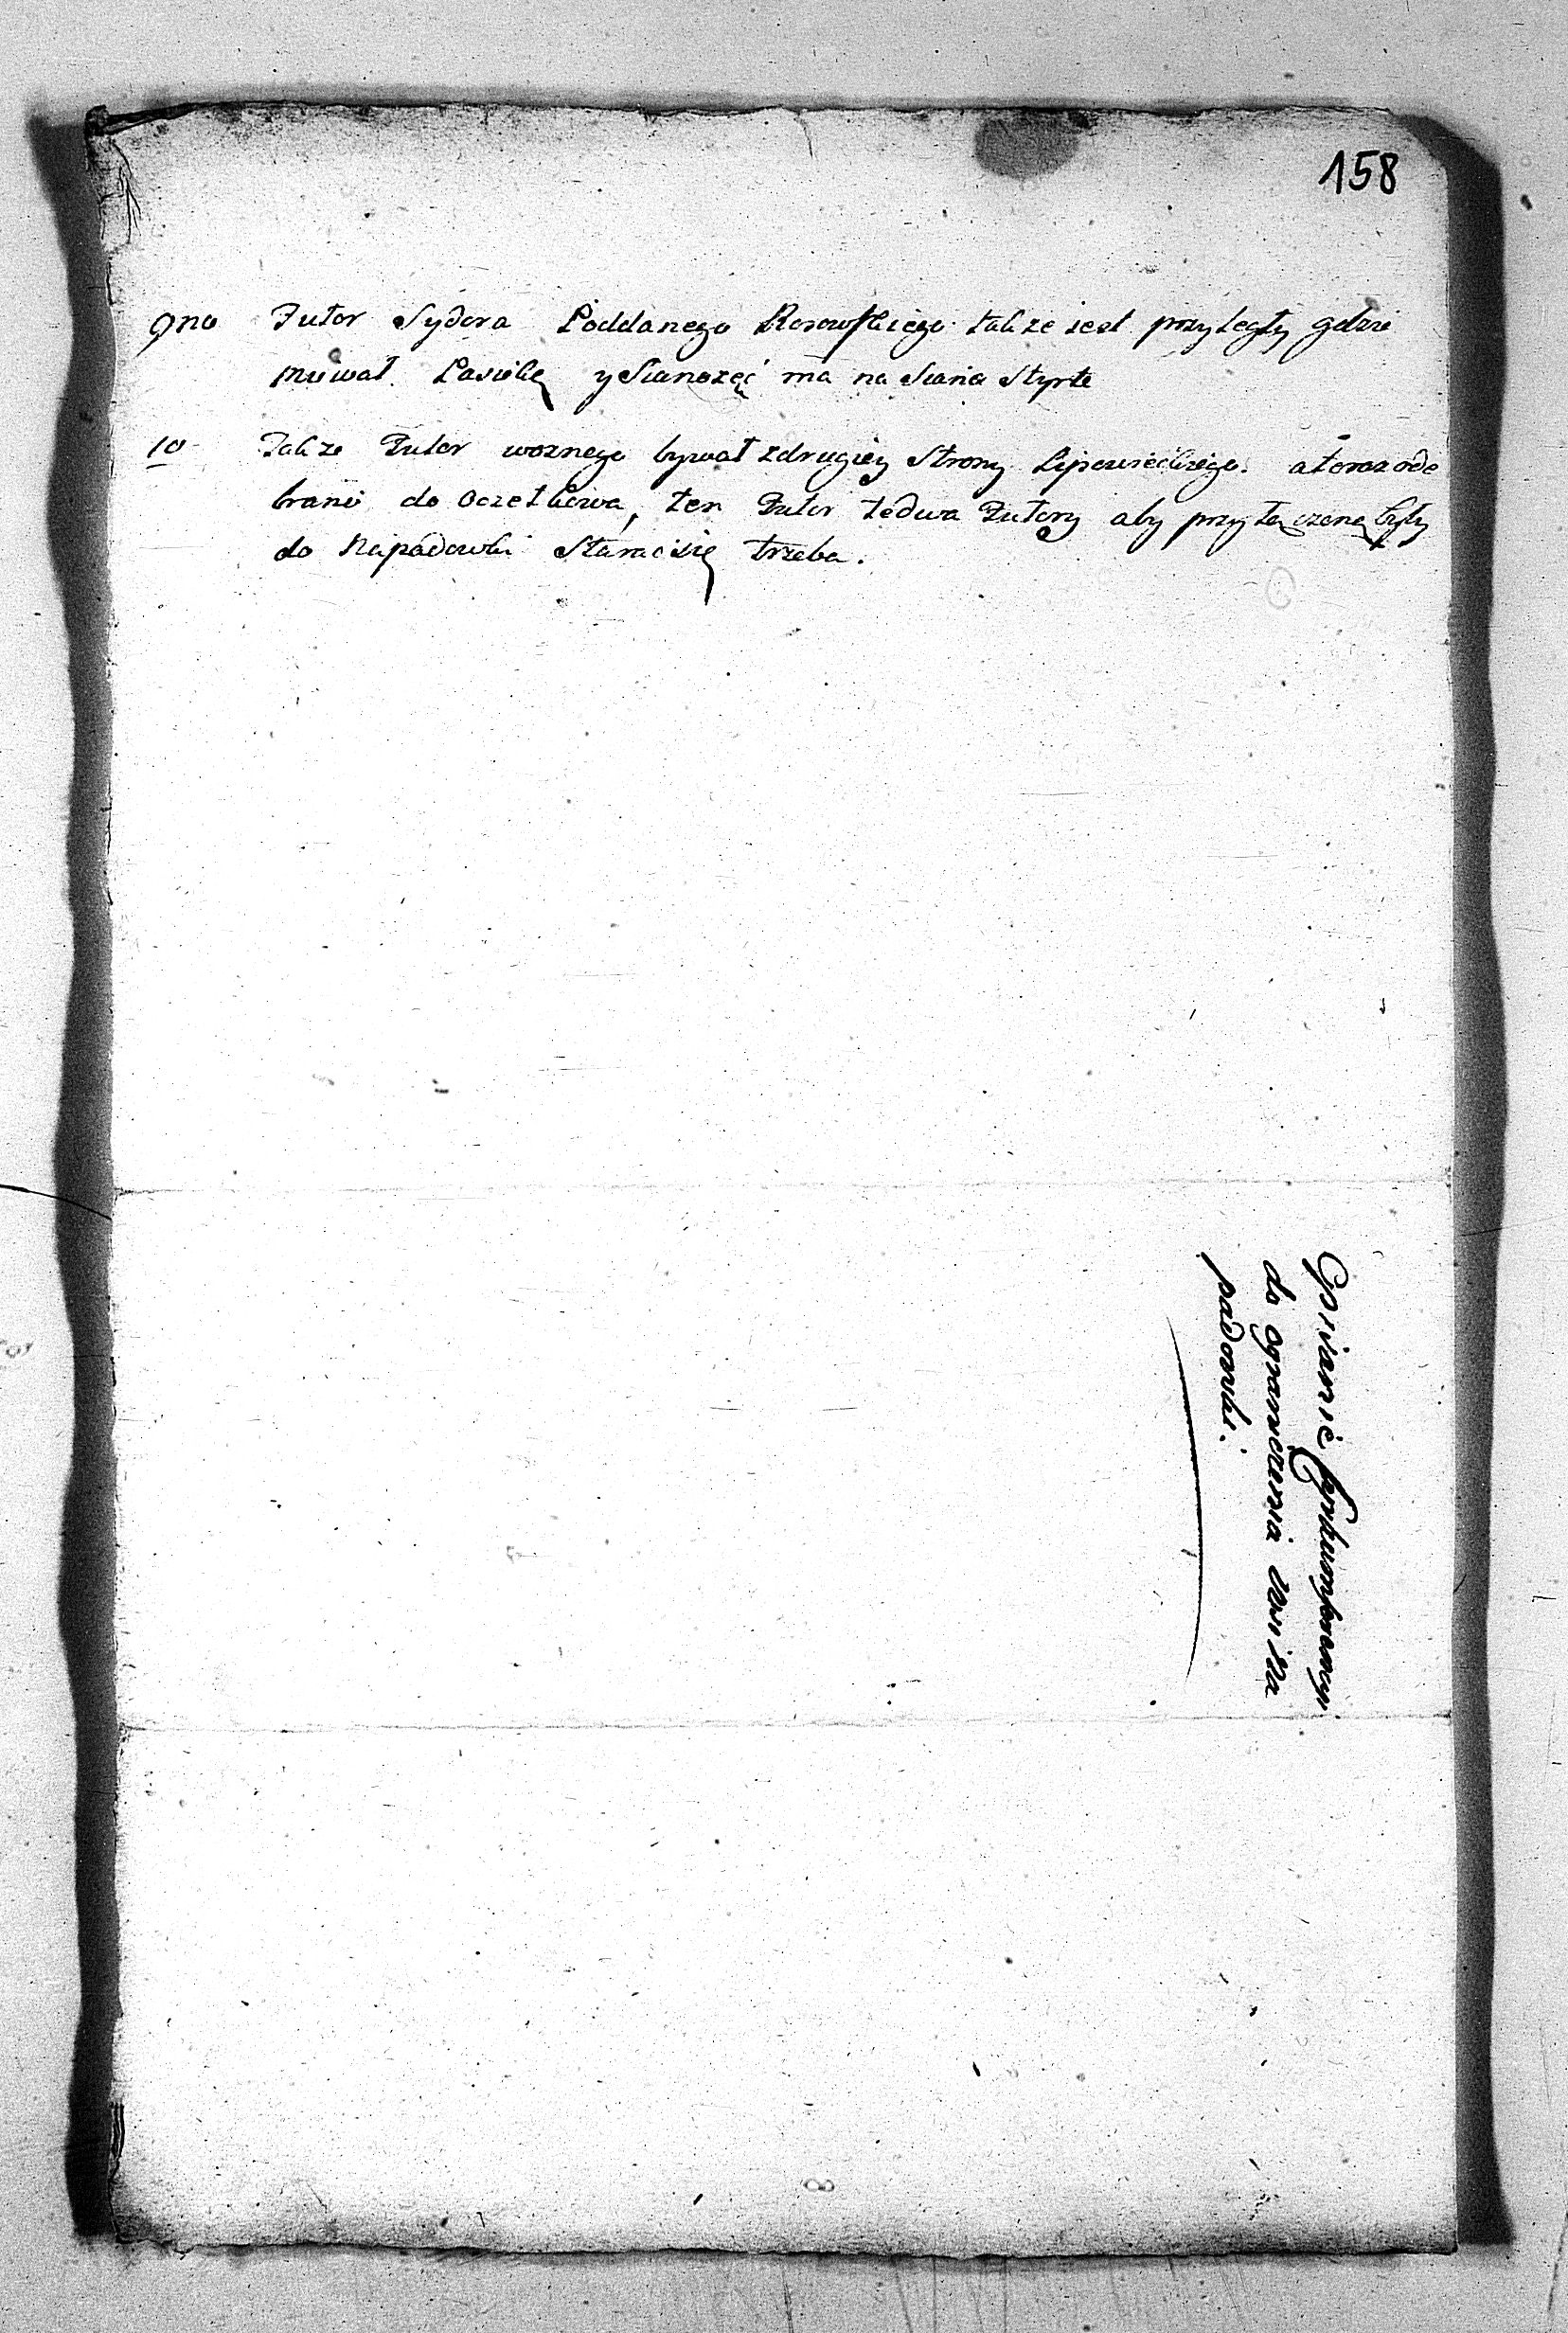 158
9no Futor Sydora Poddanego Rosowskiego takze iest przyległy gdzie
miewał Pasiekę y Sianożęć ma na Siana Styrte
10 Takze Futor woznego bywał zdrugiey Strony Lipowieckiego. a teraz ode
brano do Oczetkowa, ten Futor te dwa Futory aby przyłączone były
do Napadowki Staracisię trzeba.
Opisanie Cyrkumferencyi
do ograniczenia wsi Na
padowki.